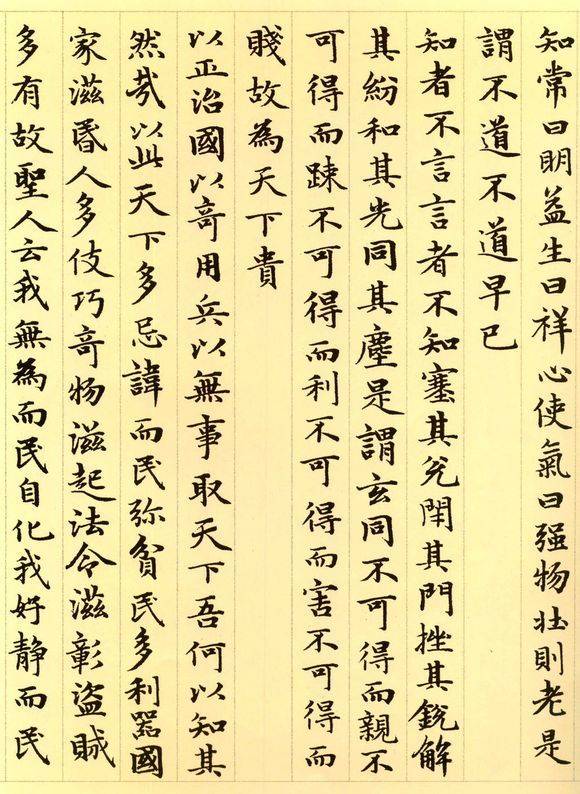 知常曰明益生曰祥心使氣曰强物壮則老是
謂不道不道早已
知者不言言者不知塞其兊閇其門挫其銳解
其紛和其光同其塵是謂玄同不可得而親不
可得而踈不可得而利不可得而害不可得而
賤故為天下貴
以正治國以竒用兵以無事取天下吾何以知其
然哉以此天下多忌諱而民弥貧民多利器國
家滋昬人多伎巧竒物滋起法令滋彰盜賊
多有故聖人云我無為而民自化我好静而民